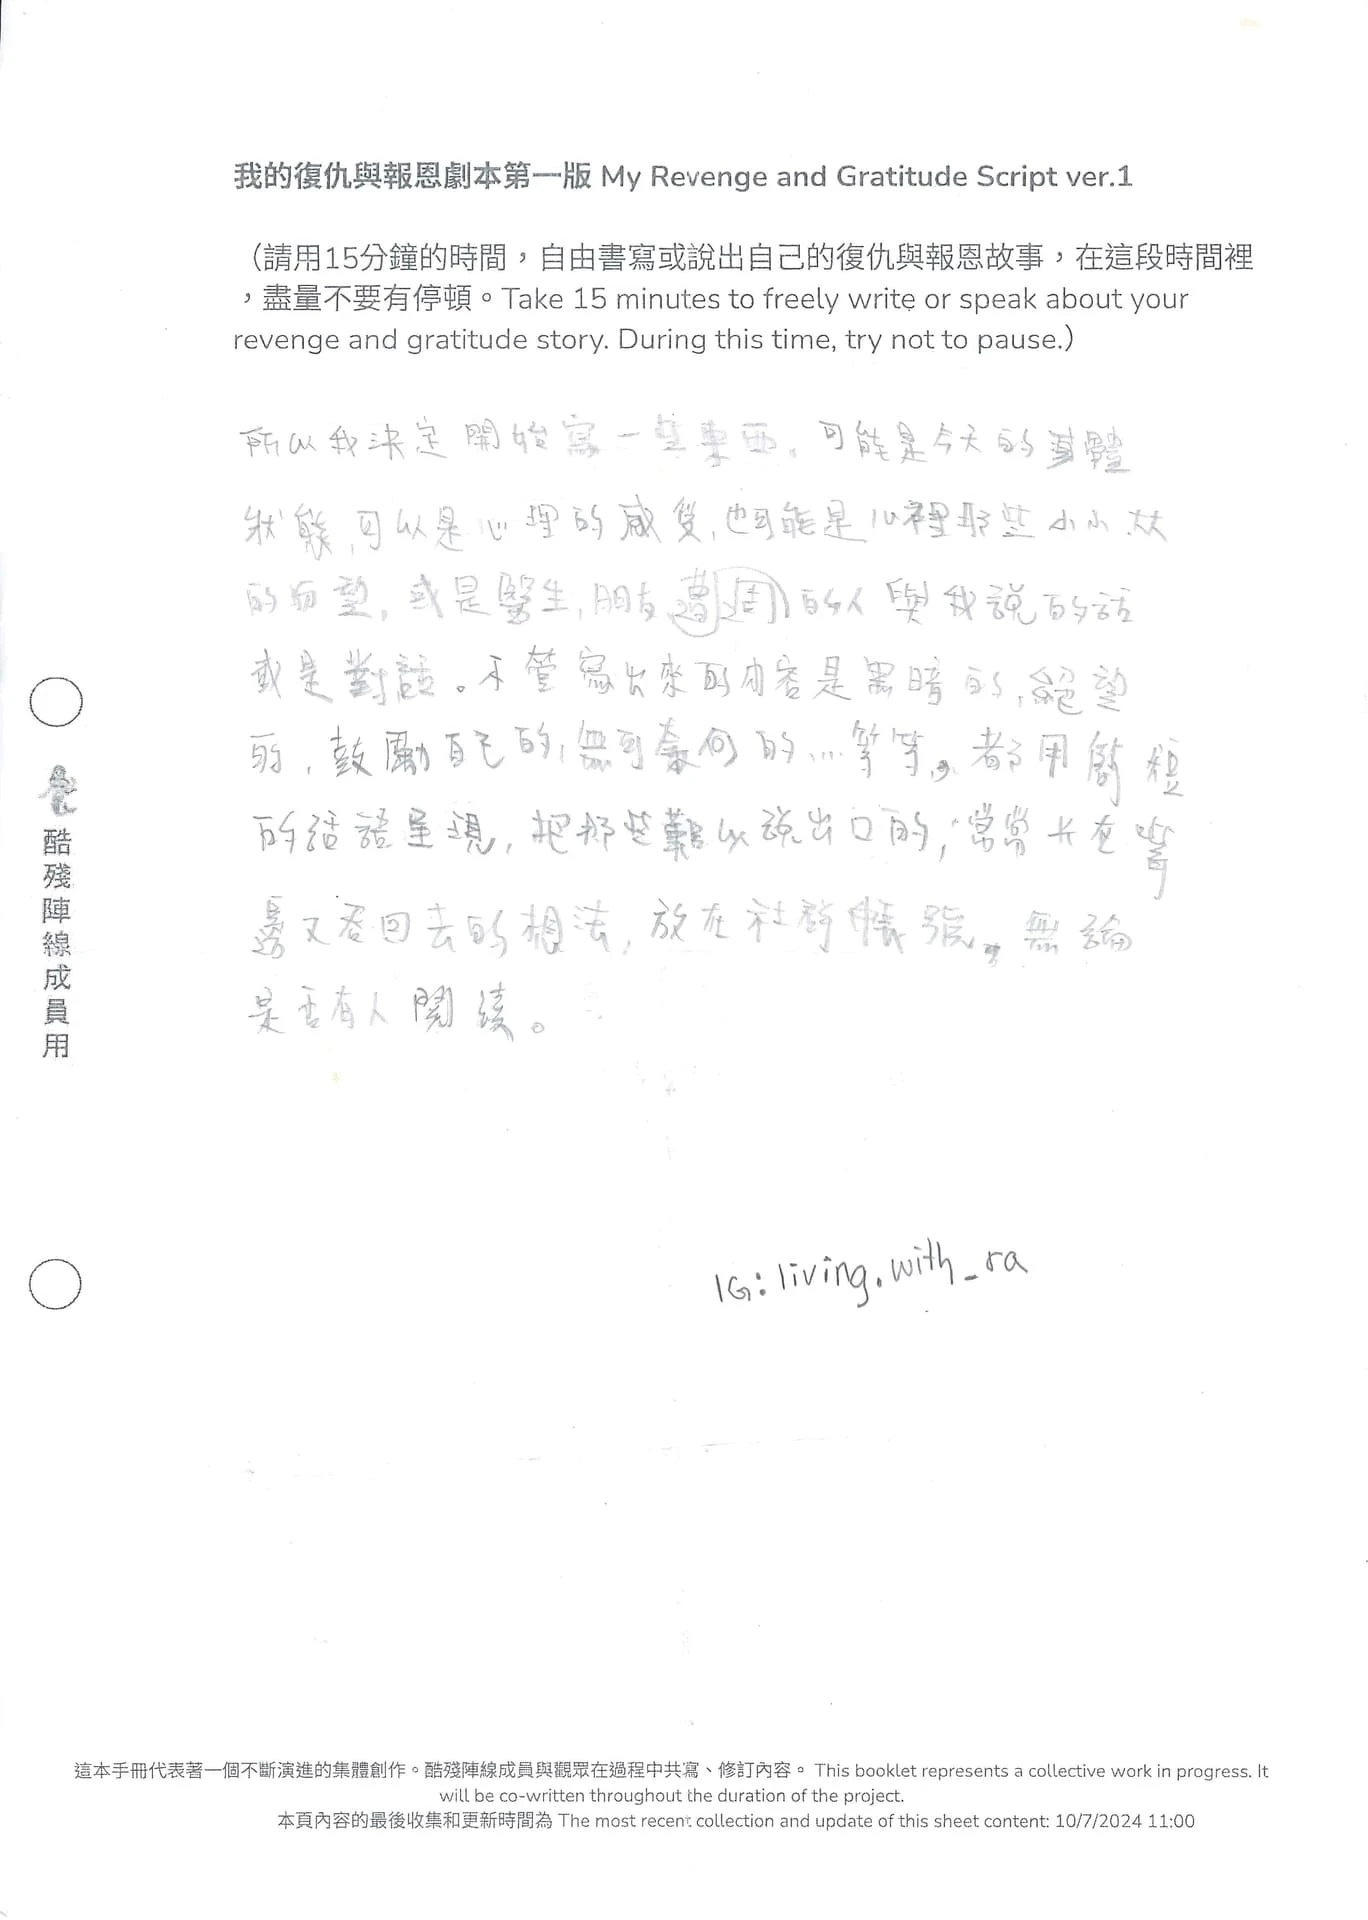 我的復仇與報恩劇本第一版 My Revenge and Gratitude Script ver.1
（請用15分鐘的時間，自由書寫或說出自己的復仇與報恩故事，在這段時間裡
，盡量不要有停頓。Take 15 minutes to freely write or speak about your
revenge and gratitude story. During this time, try not to pause.）
所以我決定開始寫一些東西，可能是今天的身體
狀態，可以是心理的感受，也可能是心裡那些小小
的盼望，或是醫生，朋友，週遭的人與我說的話
或是對話。不管寫出來的內容是黑暗的，絕望
的，鼓勵自己的，無可奈何的...等等，都用簡短
的話語呈現，把那些難以說出口的，常常卡在嘴
邊又吞回去的想法，放在社群帳號，無論
是否有人閱讀。
IG: living.with_ra
酷殘陣線成員用
這本手冊代表著一個不斷演進的集體創作。酷殘陣線成員與觀眾在過程中共寫、修訂內容。 This booklet represents a collective work in progress. It
will be co-written throughout the duration of the project.
本頁內容的最後收集和更新時間為 The most recent collection and update of this sheet content: 10/7/2024 11:00